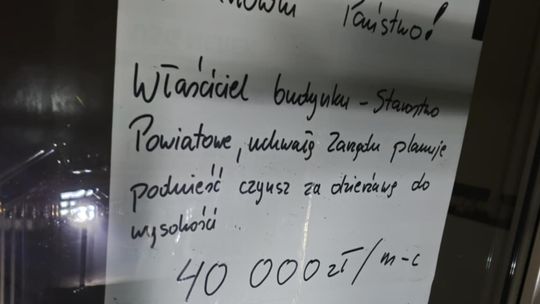 Państwo!
Właściciel budynku - Starostwo
Powiatowe, uchwałą Zarządu planuje
podnieść czynsz za dzierżawę do
wysokości
40 000 zł/m-c